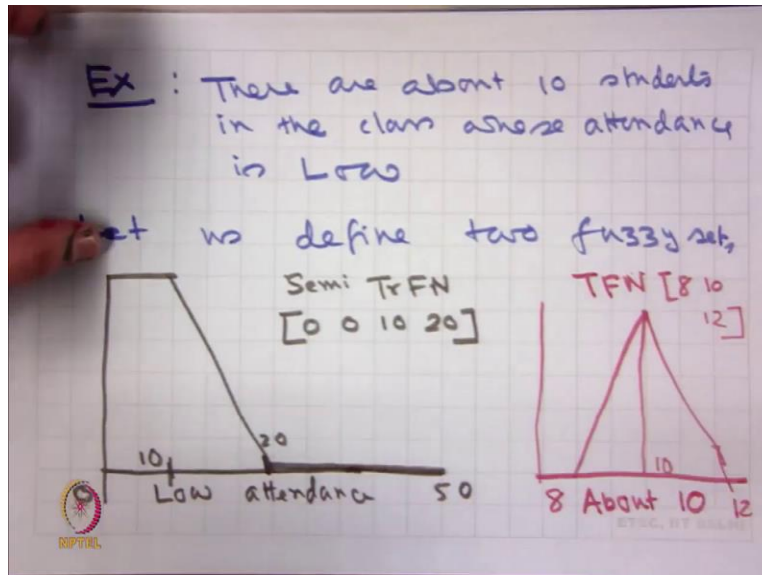 Ex : There are about 10 students
in the class whose attendance
is Low
Let us define two fuzzy sets,
Semi TrFN
[0 0 10 20]
TFN [8 10
12]
10
20
0
Low attendance
50
10
8 About 10 12
NPTEL
ETSC, IIT DELHI